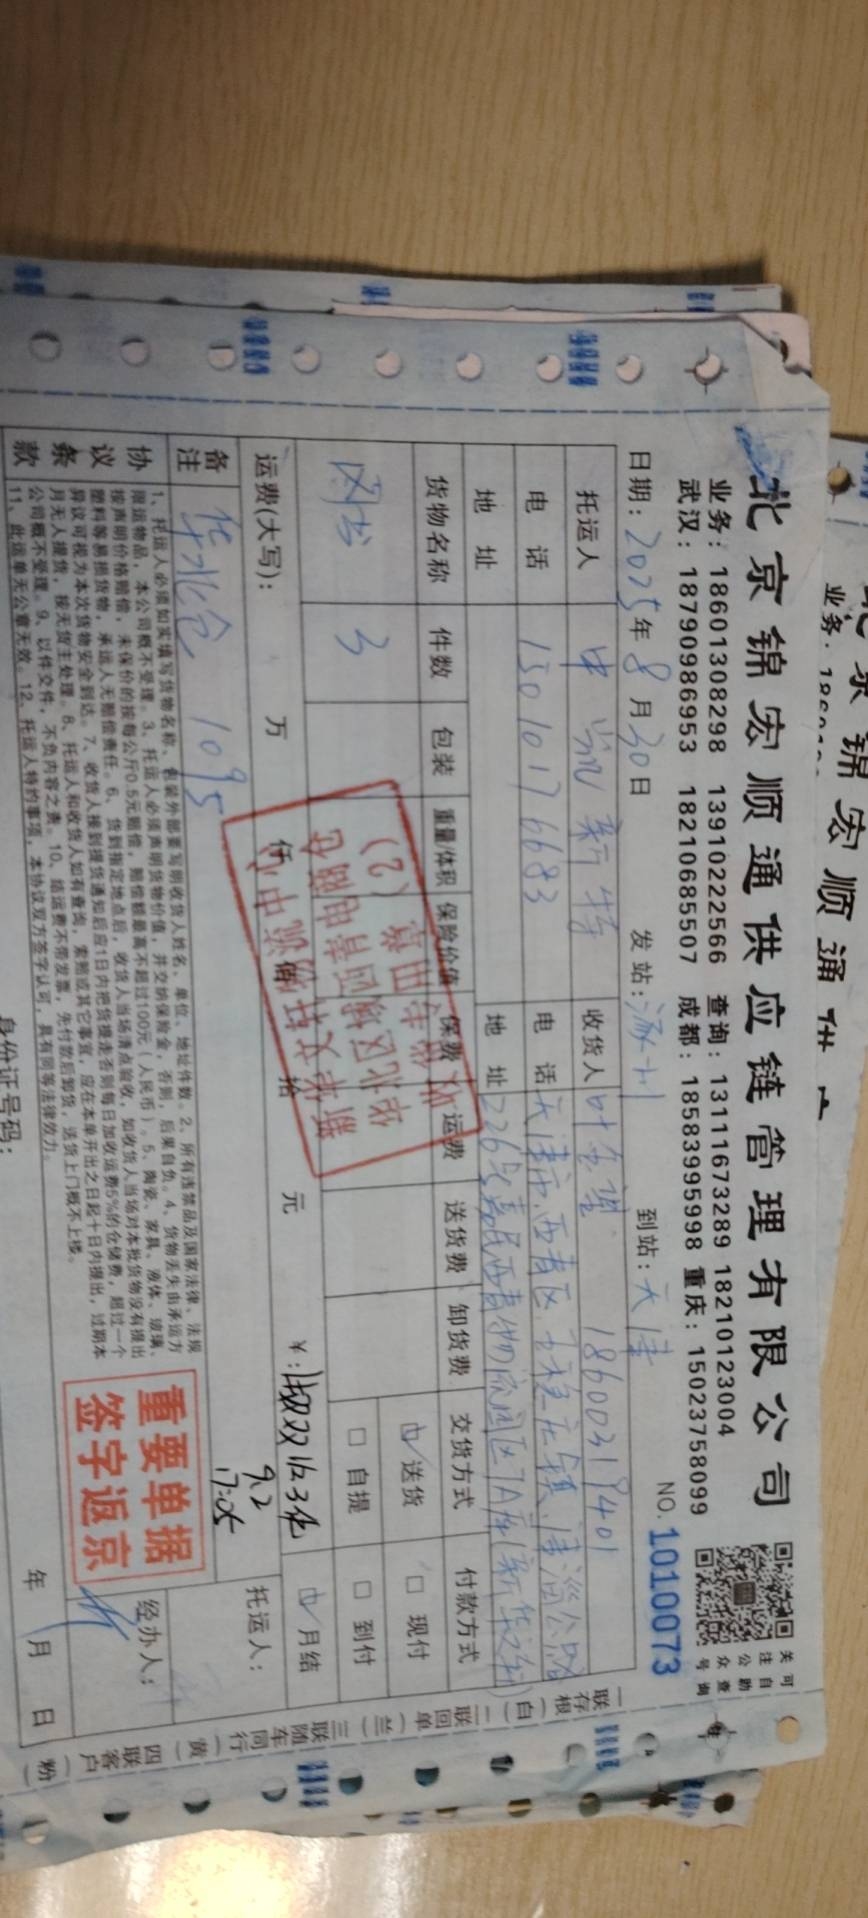 北京锦宏顺通供应链管理有限公司
业务：18601308298 13910222566 查询：13111673289 18210123004
武汉：18790986953 18210685507 成都：18583995998 重庆：15023758099
关注公众号
可自助查询
日期：2025年8月30日 发站：涿州 到站：天津 NO.1010073
托运人 中凯新特 收货人 18600319401
电话 13010176683 电话 天津市西青区
地址 地址 226号嘉民西青物流园区7A库(新华文轩)
货物名称 件数 包装 重量/体积 保险价值 保费 运费 送货费 卸货费 交货方式 付款方式
图书 3
送货 □现付
□自提 □到付
月结
运费(大写)： 万 仟 佰 拾 元 ¥：
9.2
17:05
备注 华北仓 1095
托运人：
协议条款
1、托运人必须如实填写货物名称、包装外部要写明收货人姓名、单位、地址件数。2、所有违禁品及国家法律、法规
限运物品，本公司概不受理。3、托运人必须声明货物价值，并交纳保险金，否则，后果自负。4、货物丢失由承运方
按声明价格赔偿，未保价的按每公斤0.5元赔偿，赔偿额最高不超过100元（人民币）。5、陶瓷、家具、液体、玻璃、
塑料等易损货物，承运人无赔偿责任。6、货到指定地点后，收货人当场清点验收，如收货人当场对本批货物没有提出
异议可视为本次货物安全到达。7、收货人接到提货通知后应1日内把货提走否则每日加收运费5%的仓储费，超过一个
月无人提货，按无货主处理。8、托运人和收货人如有查询，索赔或其它事宜，应在本单开出之日起十日内提出，过期本
公司概不受理。9、以件交件，不负内容之责。10、结运费不带发票，先付款后卸货，送货上门概不上楼。
11、此运单无公章无效。12、托运人特约事项，本协议双方签字认可，具有同等法律效力。
重要单据
签字返京
经办人：
身份证号码：
年 月 日
一联存根（白）二联回单（兰）三联随车同行（黄）四联客户（粉）
北京锦宏顺通供
业务：